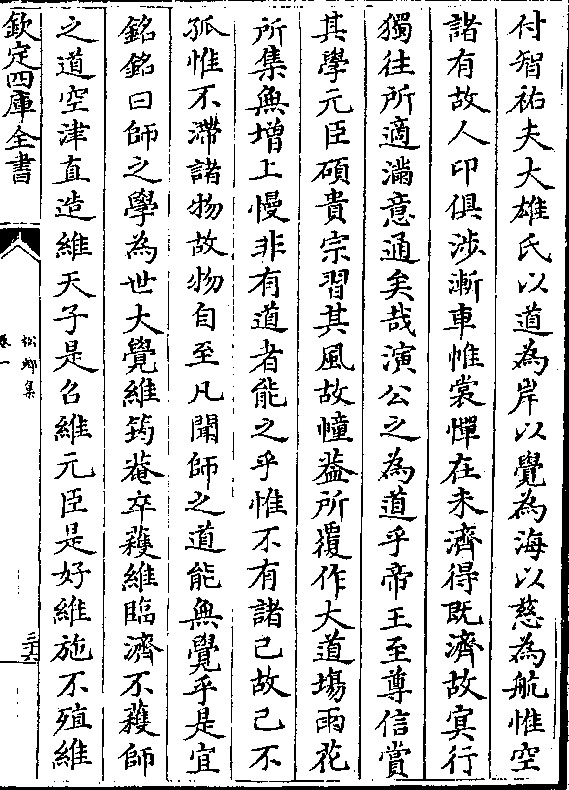 付智祐夫大雄氏以道為岸以覺為海以慈為航惟空
諸有故人印俱涉漸車帷裳憚在未濟得既濟故冥行
獨往所適滿意通矣哉演公之為道乎帝王至尊信賞
其學元臣碩貴宗習其風故幢葢所覆作大道場雨花
所集無增上慢非有道者能之乎惟不有諸己故己不
孤惟不滯諸物故物自至凡聞師之道能無覺乎是宜
銘銘曰師之學為世大覺維筠菴卒蘔維臨濟不蘔師
之道空津直造維天子是召維元臣是好維施不殖維
欽定四庫全書
松鄉集
卷一
三六